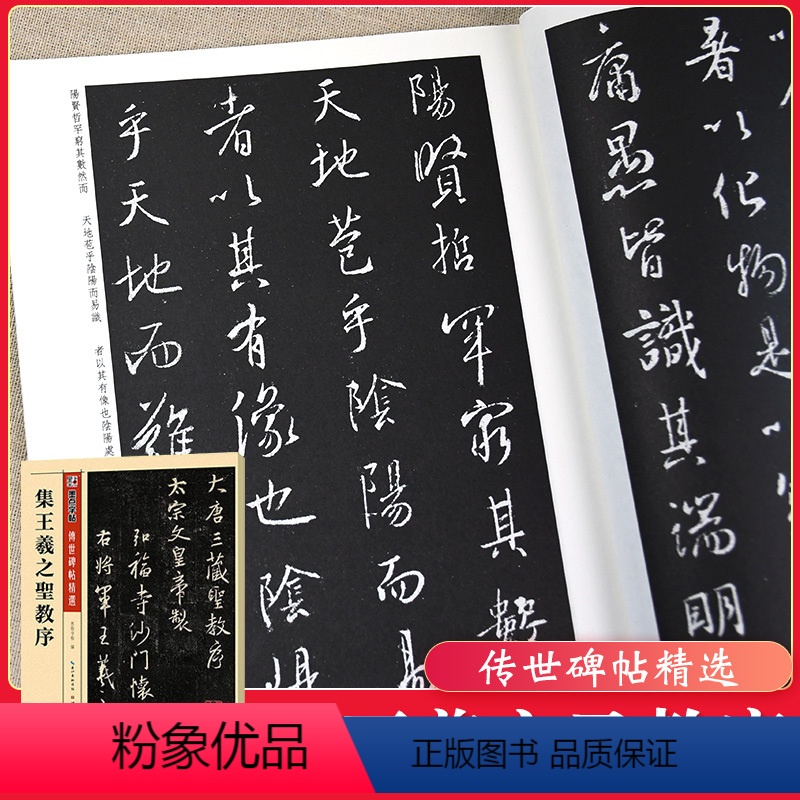 庸愚皆識其端明
者以化物是以
陽賢哲罕窮其數
天地苞乎陰陽而易
者以其有像也陰陽
乎天地而難
陽賢哲罕窮其數然而
天地苞乎陰陽而易識
者以其有像也陰陽處
墨点字帖
傳世碑帖精選
集王羲之聖教序
大唐三藏聖教序
太宗文皇帝製
弘福寺沙門懷
右將軍王羲之
传世碑帖精选
粉象优品
正版保证 品质保障